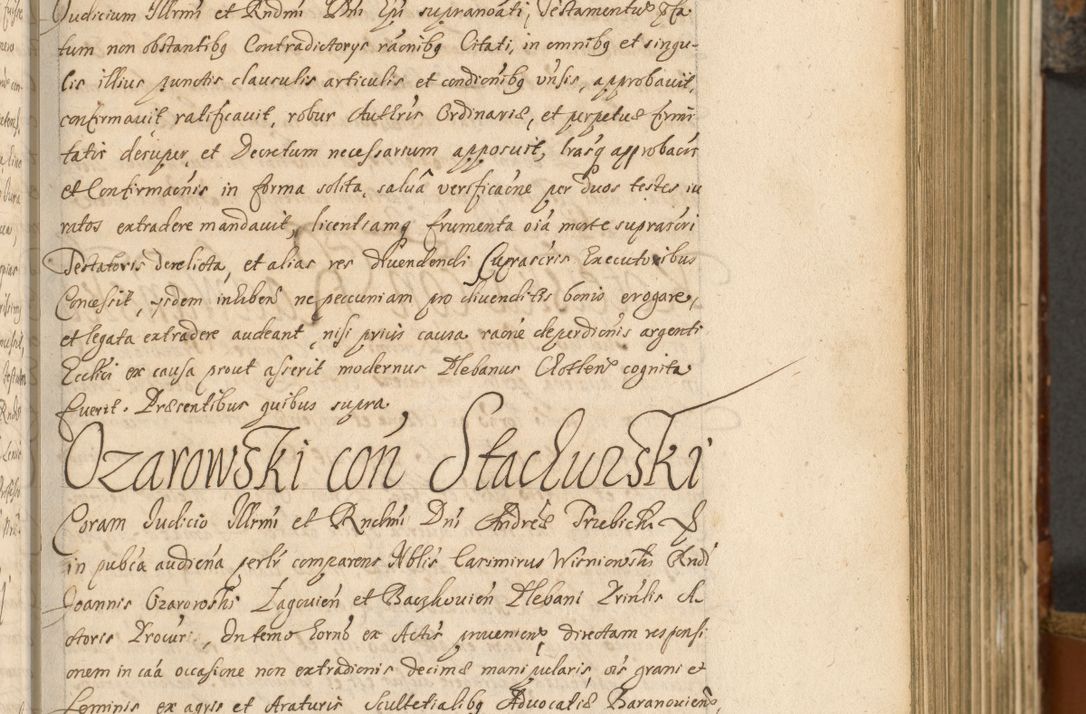 Judicium Illrmi et Rndmi Dni Epi supranoati, Testamentu
tum non obstantibq Contradictorys raonibq Citati, in omnibq et singu-
lis illius punctis clausulis articulis et condionibq vnsis, approbavit,
confirmavit, ratificavit, robur Authris Ordinariæ, et perpetuæ firmi
tatis desuper, et Decretum necessarium apposuit, lrasq approbaois
et Confirmaonis in forma solita, salvâ verificaone per duos testes iu
ratos extradere mandavit, licentiamq frumenta oia morte suprascri
Testatoris derelicta, et alias res divendendi Suprascris Executoribus
Concessit, ysdem inhibens ne peccuniam pro divenditis bonis erogare,
et legata extradere audeant, nisi prius causa raone deperdionis argenti
Ecclici ex causa prout asserit modernus Plebanus cognita
fuerit. Præsentibus quibus supra
Ozarowski con Stachurski
Coram Judicio Illrmi et Rndmi Dni Andreæ Trzebicki
in pubca audiena perlr comparens Nblis Casimirus Wisniowski Rndi
Joannis Ozarowski Lagovien et Baczkovien Plebani Prinlis A-
ctoris Procur, In termo horno ex Actis provenien, directam responsi
onem in caa occasione non extradionis decimæ manipularis, ois grani et
Leminis ex agris et Araturis Scultetialibq Advocatiæ Baranovien,